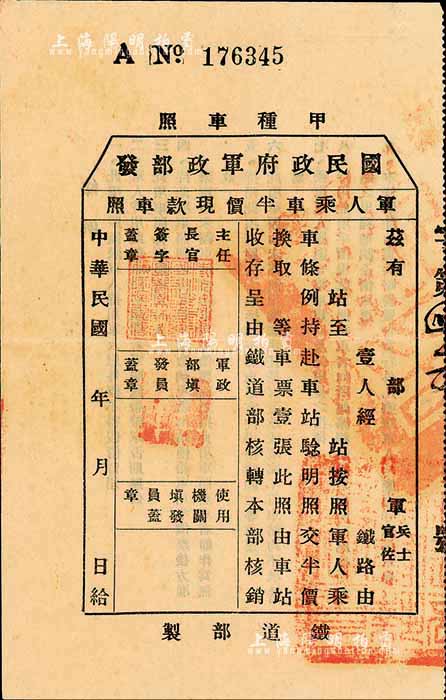 上海陽明拍賣
A № 176345
甲種車照
國民政府軍政部發
軍人乘車半價現款車照
茲有 部 軍 兵士 官佐
壹人經 鐵路由
站至 站按照軍人乘
車條例持赴車站騐明照交半價
換取 等車票壹張此照由車站
收存呈由鐵道部核轉本部核銷
主任
長官
簽字
蓋章
軍政
部填
發員
蓋章
使用
機關
填發
員蓋
章
中華民國 年 月 日給
鐵道部製
上海陽明拍賣
上海陽明拍賣